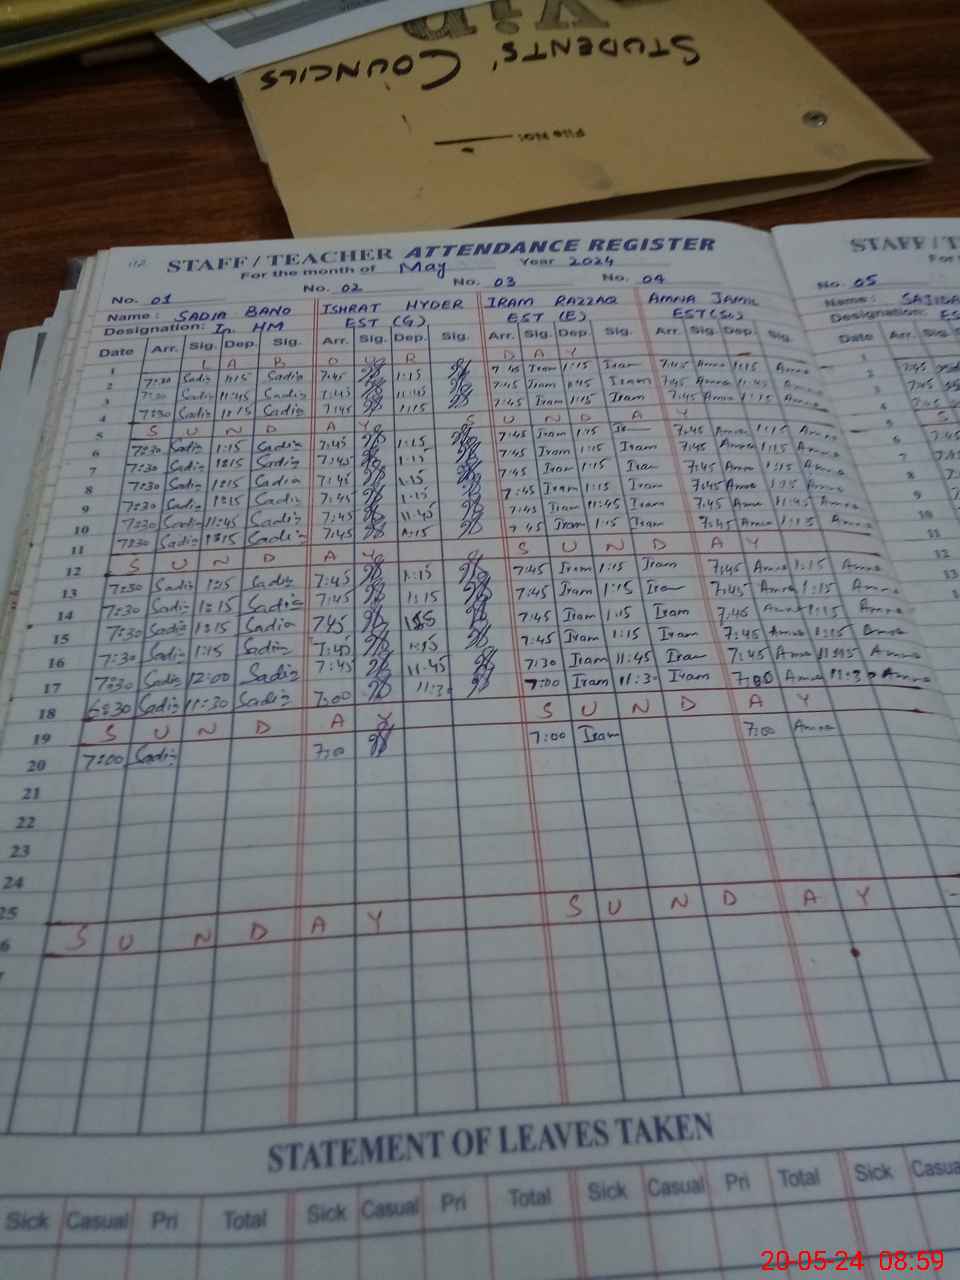 STUDENTS' COUNCILS
File No:
STAFF / TEACHER ATTENDANCE REGISTER
For the month of May Year 2024
No. 01 No. 02 No. 03 No. 04
Name: SADIA BANO ISHRAT HYDER IRAM RAZZAQ AMNA JAMIL
Designation: In. HM EST (G) EST (E) EST (Sc)
Date Arr. Sig. Dep. Sig. Arr. Sig. Dep. Sig. Arr. Sig. Dep. Sig. Arr. Sig. Dep. Sig.
1 L A B O U R D A Y
2 7:30 Sadia 1:15 Sadia 7:45 1:15 7:45 Iram 1:15 Iram 7:45 Amna 1:15 Amna
3 7:30 Sadia 11:45 Sadia 7:45 11:45 7:45 Iram 11:45 Iram 7:45 Amna 11:45 Amna
4 7:30 Sadia 1:15 Sadia 7:45 1:15 7:45 Iram 1:15 Iram 7:45 Amna 1:15 Amna
5 S U N D A Y S U N D A Y
6 7:30 Sadia 1:15 Sadia 7:45 1:15 7:45 Iram 1:15 Iram 7:45 Amna 1:15 Amna
7 7:30 Sadia 1:15 Sadia 7:45 1:15 7:45 Iram 1:15 Iram 7:45 Amna 1:15 Amna
8 7:30 Sadia 1:15 Sadia 7:45 1:15 7:45 Iram 1:15 Iram 7:45 Amna 1:15 Amna
9 7:30 Sadia 1:15 Sadia 7:45 1:15 7:45 Iram 1:15 Iram 7:45 Amna 1:15 Amna
10 7:30 Sadia 11:45 Sadia 7:45 11:45 7:45 Iram 11:45 Iram 7:45 Amna 11:45 Amna
11 7:30 Sadia 1:15 Sadia 7:45 1:15 7:45 Iram 1:15 Iram 7:45 Amna 1:15 Amna
12 S U N D A Y S U N D A Y
13 7:30 Sadia 1:15 Sadia 7:45 1:15 7:45 Iram 1:15 Iram 7:45 Amna 1:15 Amna
14 7:30 Sadia 1:15 Sadia 7:45 1:15 7:45 Iram 1:15 Iram 7:45 Amna 1:15 Amna
15 7:30 Sadia 1:15 Sadia 7:45 7:45 Iram 1:15 Iram 7:45 Amna 1:15 Amna
16 7:30 Sadia 1:15 Sadia 7:45 1:15 7:45 Iram 1:15 Iram 7:45 Amna 1:15 Amna
17 7:30 Sadia 12:00 Sadia 7:45 11:45 7:30 Iram 11:45 Iram 7:45 Amna Amna
18 6:30 Sadia 11:30 Sadia 7:00 11:30 7:00 Iram 11:30 Iram 7:00 Amna 11:30 Amna
19 S U N D A Y S U N D A Y
20 7:00 Sadia 7:0 7:00 Iram 7:00 Amna
21
22
23
24
25
6 S U N D A Y S U N D A Y
STATEMENT OF LEAVES TAKEN
Sick Casual Pri Total Sick Casual Pri Total Sick Casual Pri Total Sick Casua
STAFF / T
No. 05
Name: SAJIDA
Designation: ES
Date Arr. Sig.
1
2 7:45
3 7:45
8
9
10
11
12
13
20-05-24 08:59